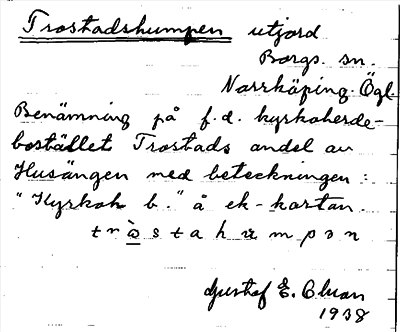 Trostadshumpen utjord
Borgs sn.
Norrköping. Ögl.
Benämning på f.d. kyrkoherde-
bostället Trostads andel av
Husängen med beteckningen:
"Kyrkoh b." å ek-kartan.
Gustaf E. Clivan
1938